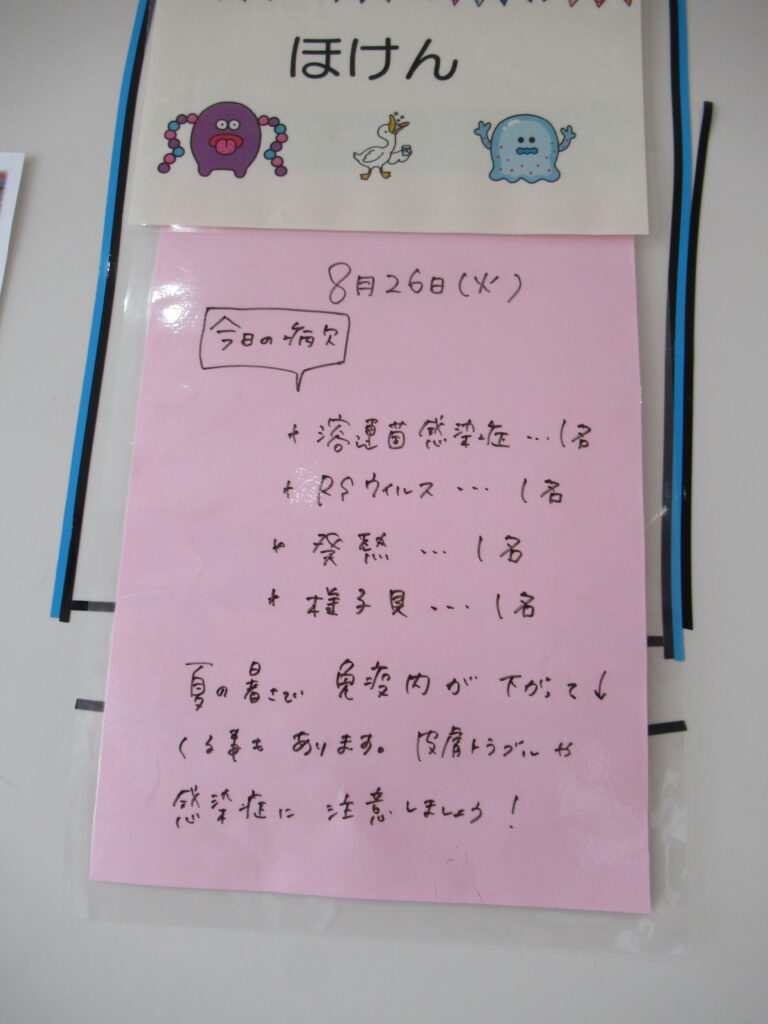 ほけん
8月26日(火)
今日の病欠
* 溶連菌感染症…1名
* RSウィルス … 1名
* 発熱 … 1名
* 様子見 … 1名
夏の暑さで 免疫内が 下がって↓
くる事も あります。皮膚トラブルや
感染症に 注意しましょう!